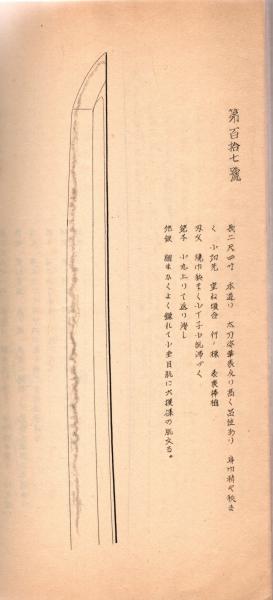 第百拾七號
長二尺四寸 本造り 太刀姿華表反り高く品位あり 身巾稍や狭まく 小切先 重ね頃合 行ノ棟 表裏棒樋
刃文 焼巾狭まく小丁子小乱沸づく
鋩子 小丸上りて返り浅し
地鉄 細まかくよく錬れて小杢目肌に大模様の肌交る。